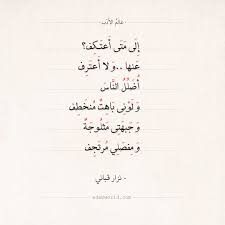 عالم الأدب
إلى متى أعتكف؟
عنها ..و لا أعترف
أضلل الناس
و لوني باهت منخطف
و جبهتي مثلوجة
و مفصلي مرتجف
- نزار قباني -
adabworld.com